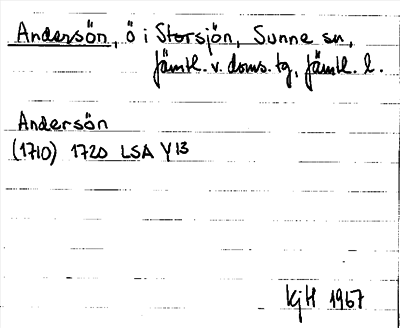 Andersön, ö i Storsjön, Sunne sn,
Jämtl. v. doms. tg, Jämtl. l.
Andersön
(1710) 1720 LSA Y13
KjH 1967